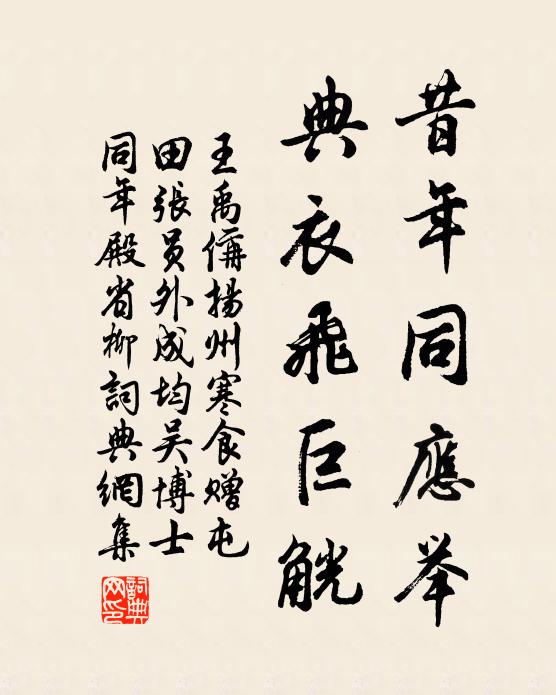 昔年同應举
典衣飛巨觥
王禹偁揚州寒食赠屯
田張员外成均吴博士
同年殿省柳詞典網集
詞典网印